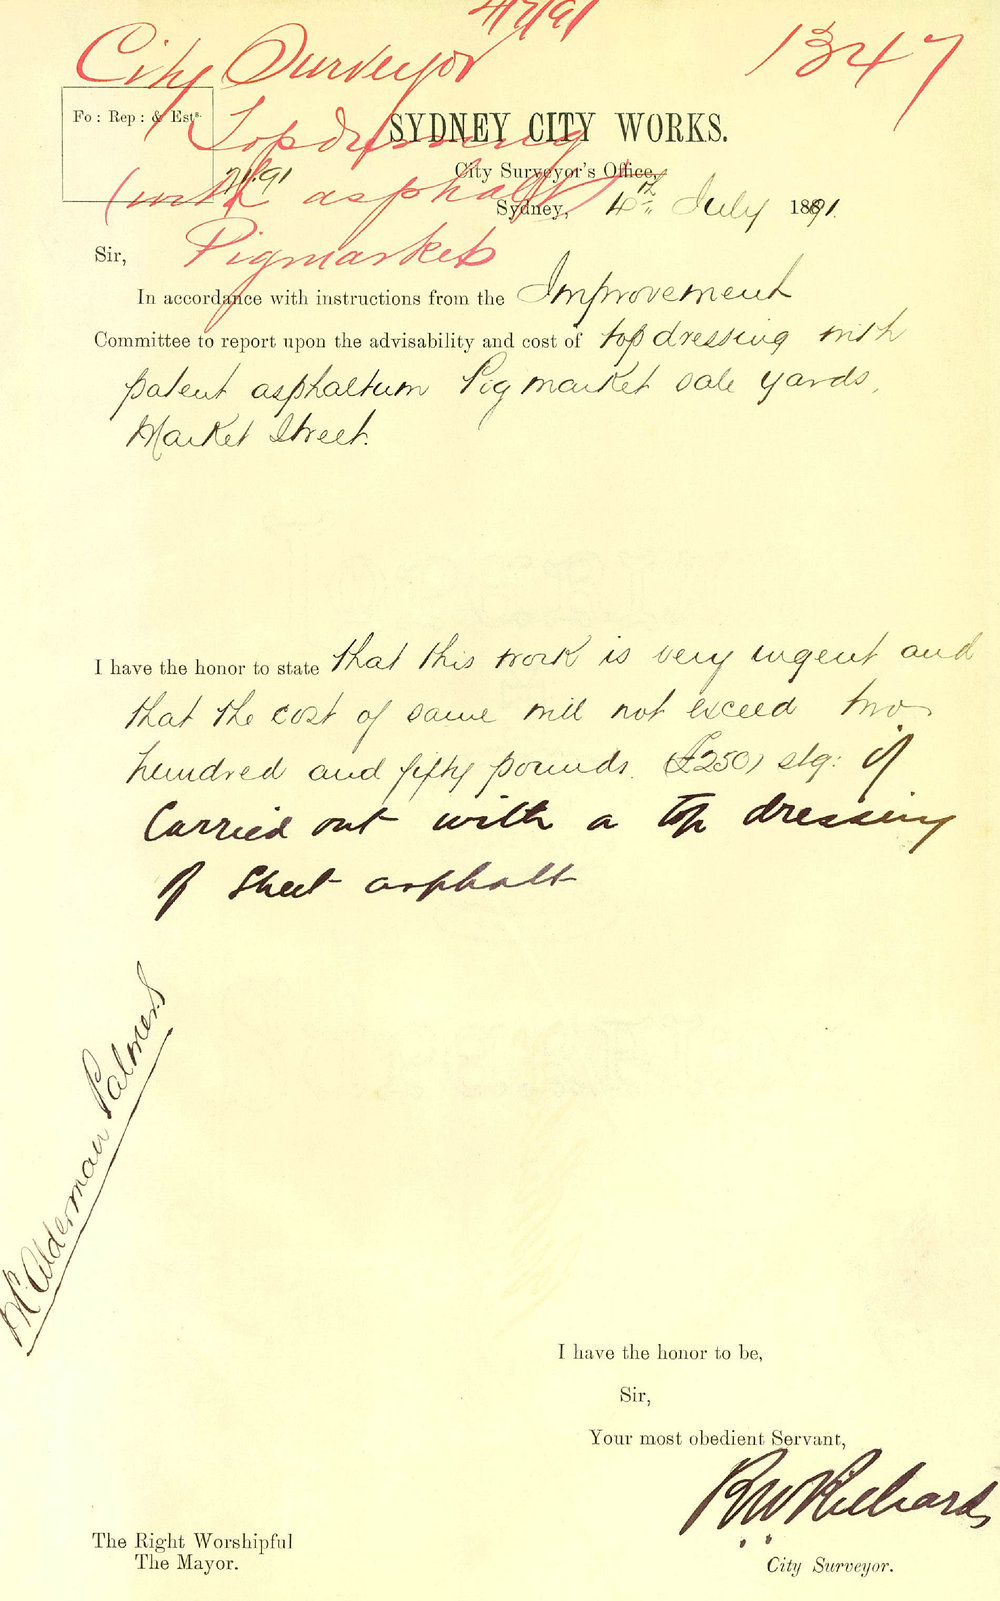 4/7/91
City Surveyor
1347
Fo: Rep: & Ests.
Topdressing
SYDNEY CITY WORKS.
City Surveyor's Office,
(with asphalt)
Sydney, 4th July 1891.
Sir,
Pigmarkets
In accordance with instructions from the Improvement
Committee to report upon the advisability and cost of topdressing with
patent asphaltum Pig market sale yards,
Market Street.
I have the honor to state that this work is very urgent and
that the cost of same will not exceed two
hundred and fifty pounds (£250) stg: if
Carried out with a top dressing
of Sheet asphalt
Mr Alderman Palmer
I have the honor to be,
Sir,
Your most obedient Servant,
RW Richards
The Right Worshipful
The Mayor.
City Surveyor.